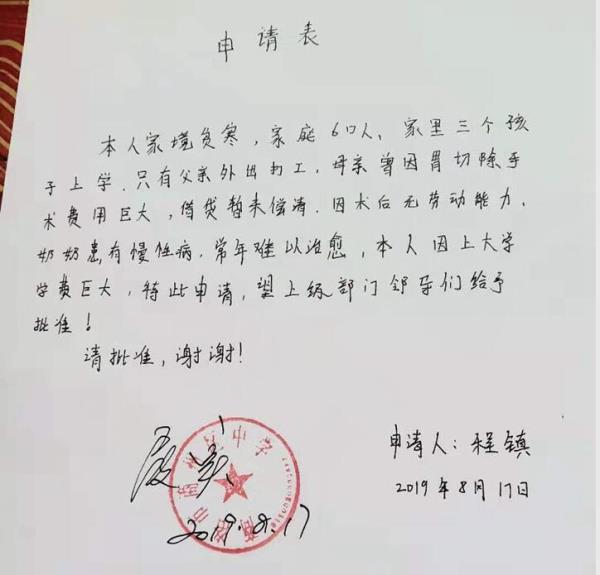 申请表
本人家境贫寒，家庭6口人，家里三个孩
子上学．只有父亲外出打工，母亲曾因胃切除手
术费用巨大，借贷暂未偿清．因术后无劳动能力．
奶奶患有慢性病．常年难以治愈，本人因上大学
学费巨大，特此申请，望上级部门领导们给予
批准！
请批准，谢谢！
申请人：程镇
2019年8月17日
中学
2019.8.17